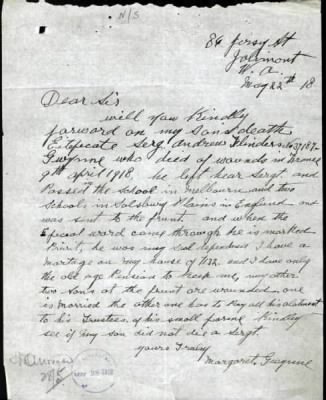 N/S
86 Jersy St
Jolimont
W. A
May 22th 18
Dear Sir
will you Kindly
forward on my Sons death
Serg. Andrew Flinders
Gwynne who died of wounds in France
9th April 1918, he left hear Sergt. and
Passed the School in Melbourn and two
Schools in Salsbury Plains in England and
was sent to the frunt and when the
word came through he is marked
he was my Sol I have a
on my house of £132 and I have only
the old age Pension to keep me, my other
two Sons at the frunt are wounded one
is Married the other one has to Pay all his alotment
to his Trustees of his small farme Kindley
see if my son did not die a Sergt
yours Truley
Margaret Gwynne